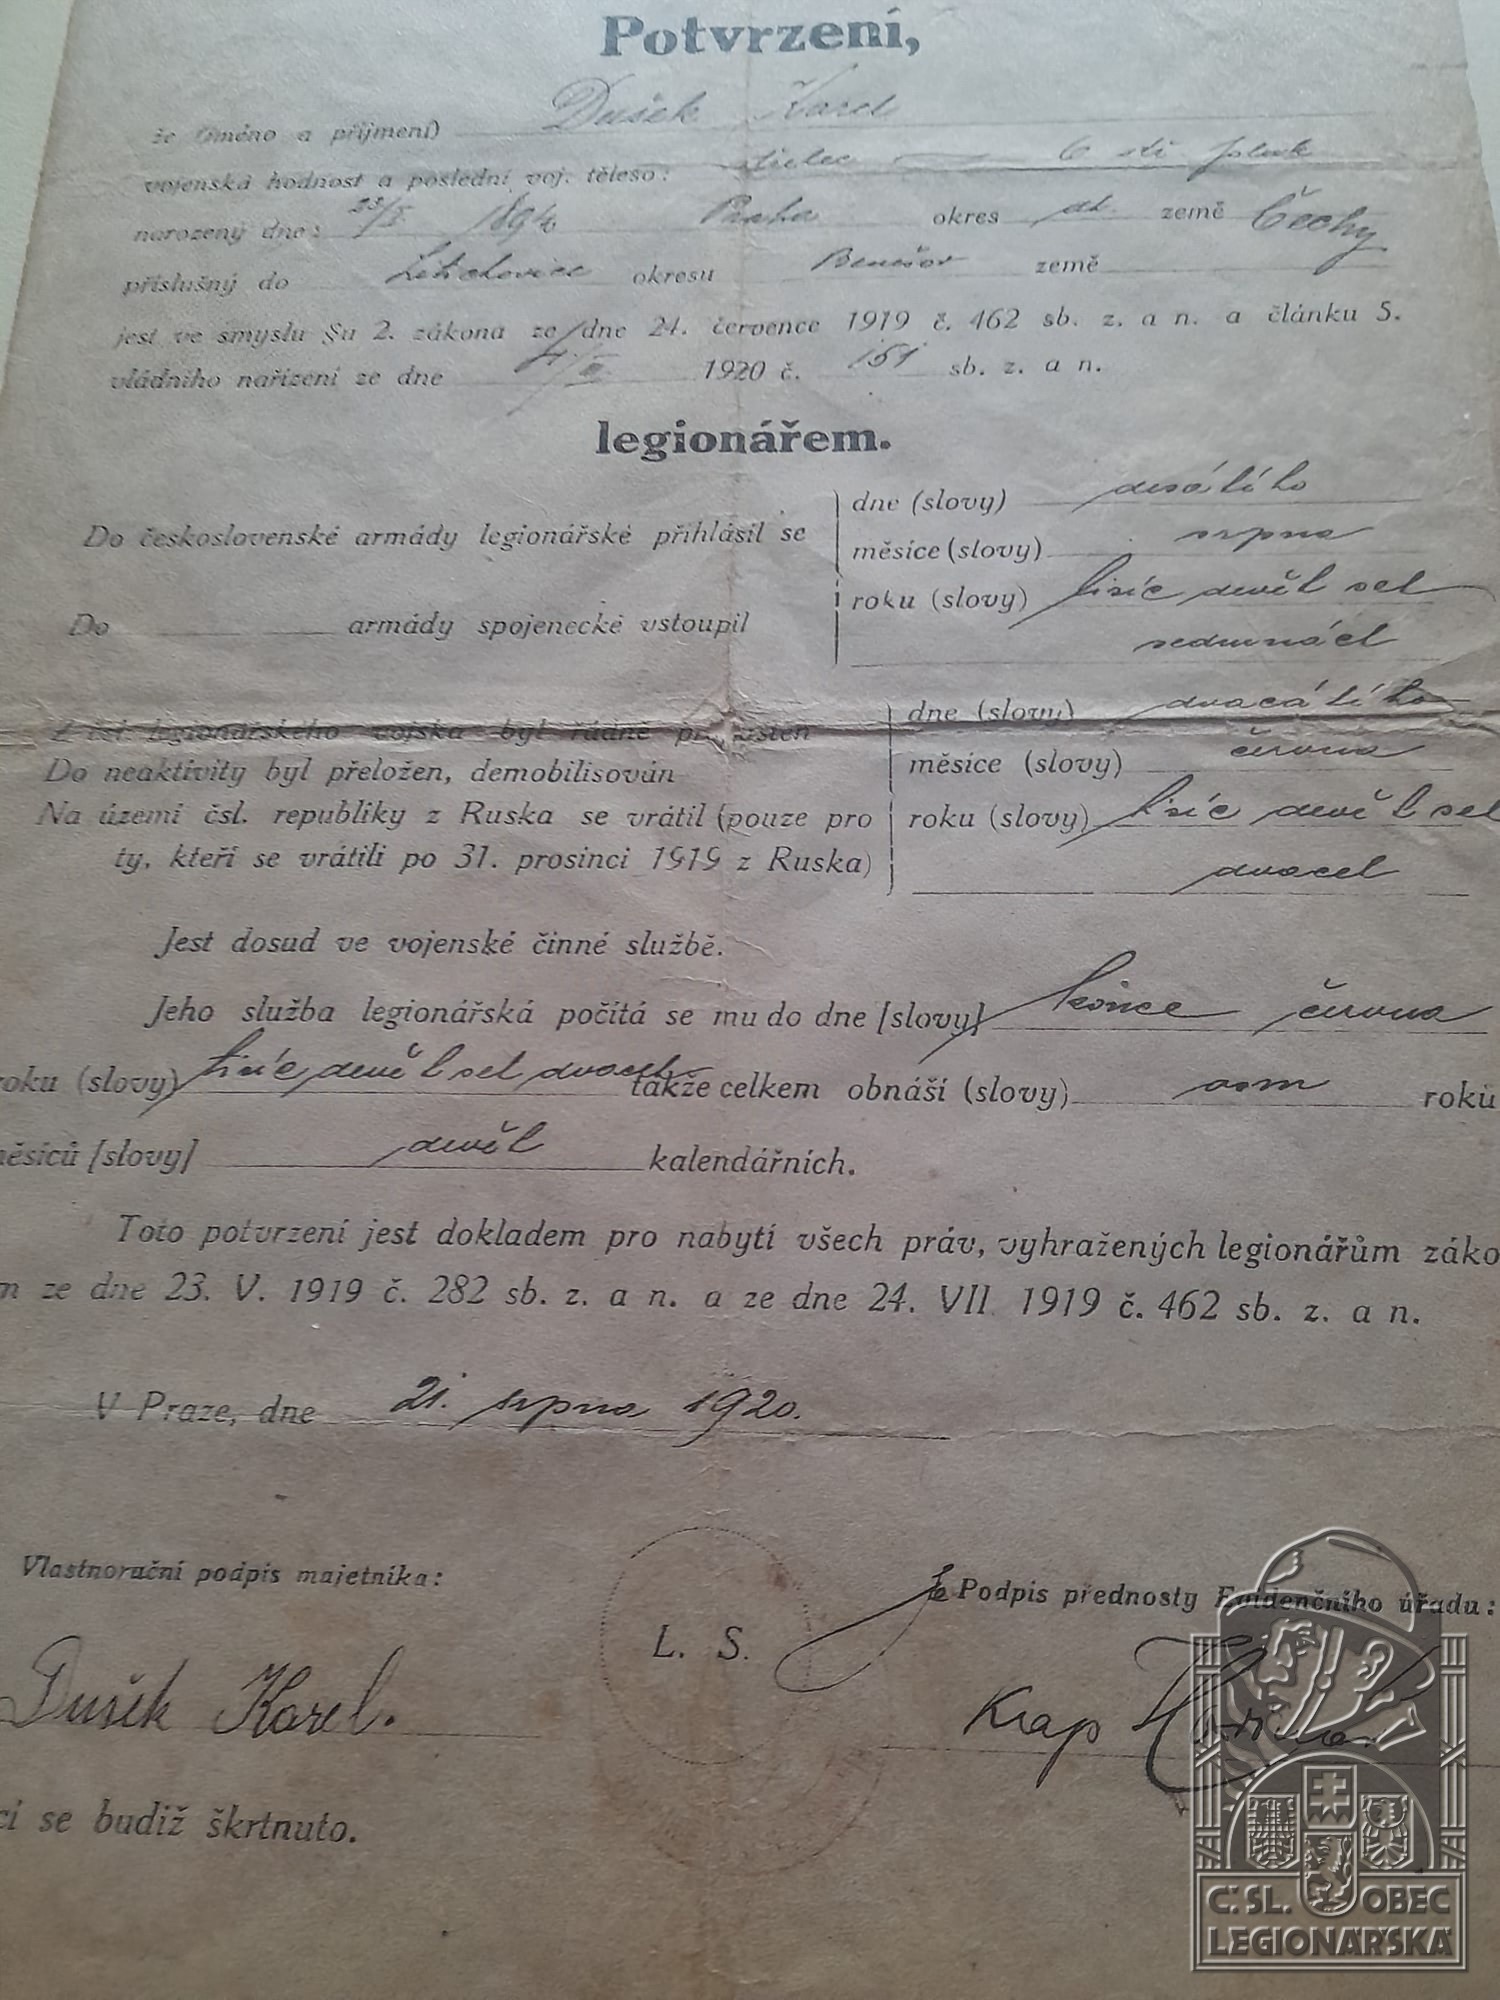 Potvrzení,
že (jméno a příjmení) Dušek Karel
vojenská hodnost a poslední voj. těleso: střelec — 6 stř. pluk
narozený dne: 23/X 1894 Praha okres dt. země Čechy
příslušný do okresu Benešov země
jest ve smyslu §u 2. zákona ze dne 24. července 1919 č. 462 sb. z. a n. a článku 5.
vládního nařízení ze dne 1920 č. 151 sb. z. a n.
legionářem.
Do československé armády legionářské přihlásil se
Do armády spojenecké vstoupil
dne (slovy) desátého
měsíce (slovy) srpna
roku (slovy) tisíc devět set
sedmnáct
Z čsl. legionářského vojska byl řádně propuštěn
Do neaktivity byl přeložen, demobilisován
Na území čsl. republiky z Ruska se vrátil (pouze pro
ty, kteří se vrátili po 31. prosinci 1919 z Ruska)
dne (slovy) dvacátého
měsíce (slovy) června
roku (slovy) tisíc devět set
dvacet
Jest dosud ve vojenské činné službě.
Jeho služba legionářská počítá se mu do dne [slovy] konce června
roku (slovy) tisíc devět set dvacet takže celkem obnáší (slovy) osm roků
měsíců [slovy] devět kalendářních.
Toto potvrzení jest dokladem pro nabytí všech práv, vyhražených legionářům záko
m ze dne 23. V. 1919 č. 282 sb. z. a n. a ze dne 24. VII. 1919 č. 462 sb. z. a n.
V Praze, dne 21. srpna 1920.
Vlastnoruční podpis majetníka:
L. S.
Podpis přednosty Evidenčního úřadu:
Dušek Karel.
Kap
cí se budiž škrtnuto.
Č. SL. OBEC
LEGIONÁŘSKÁ